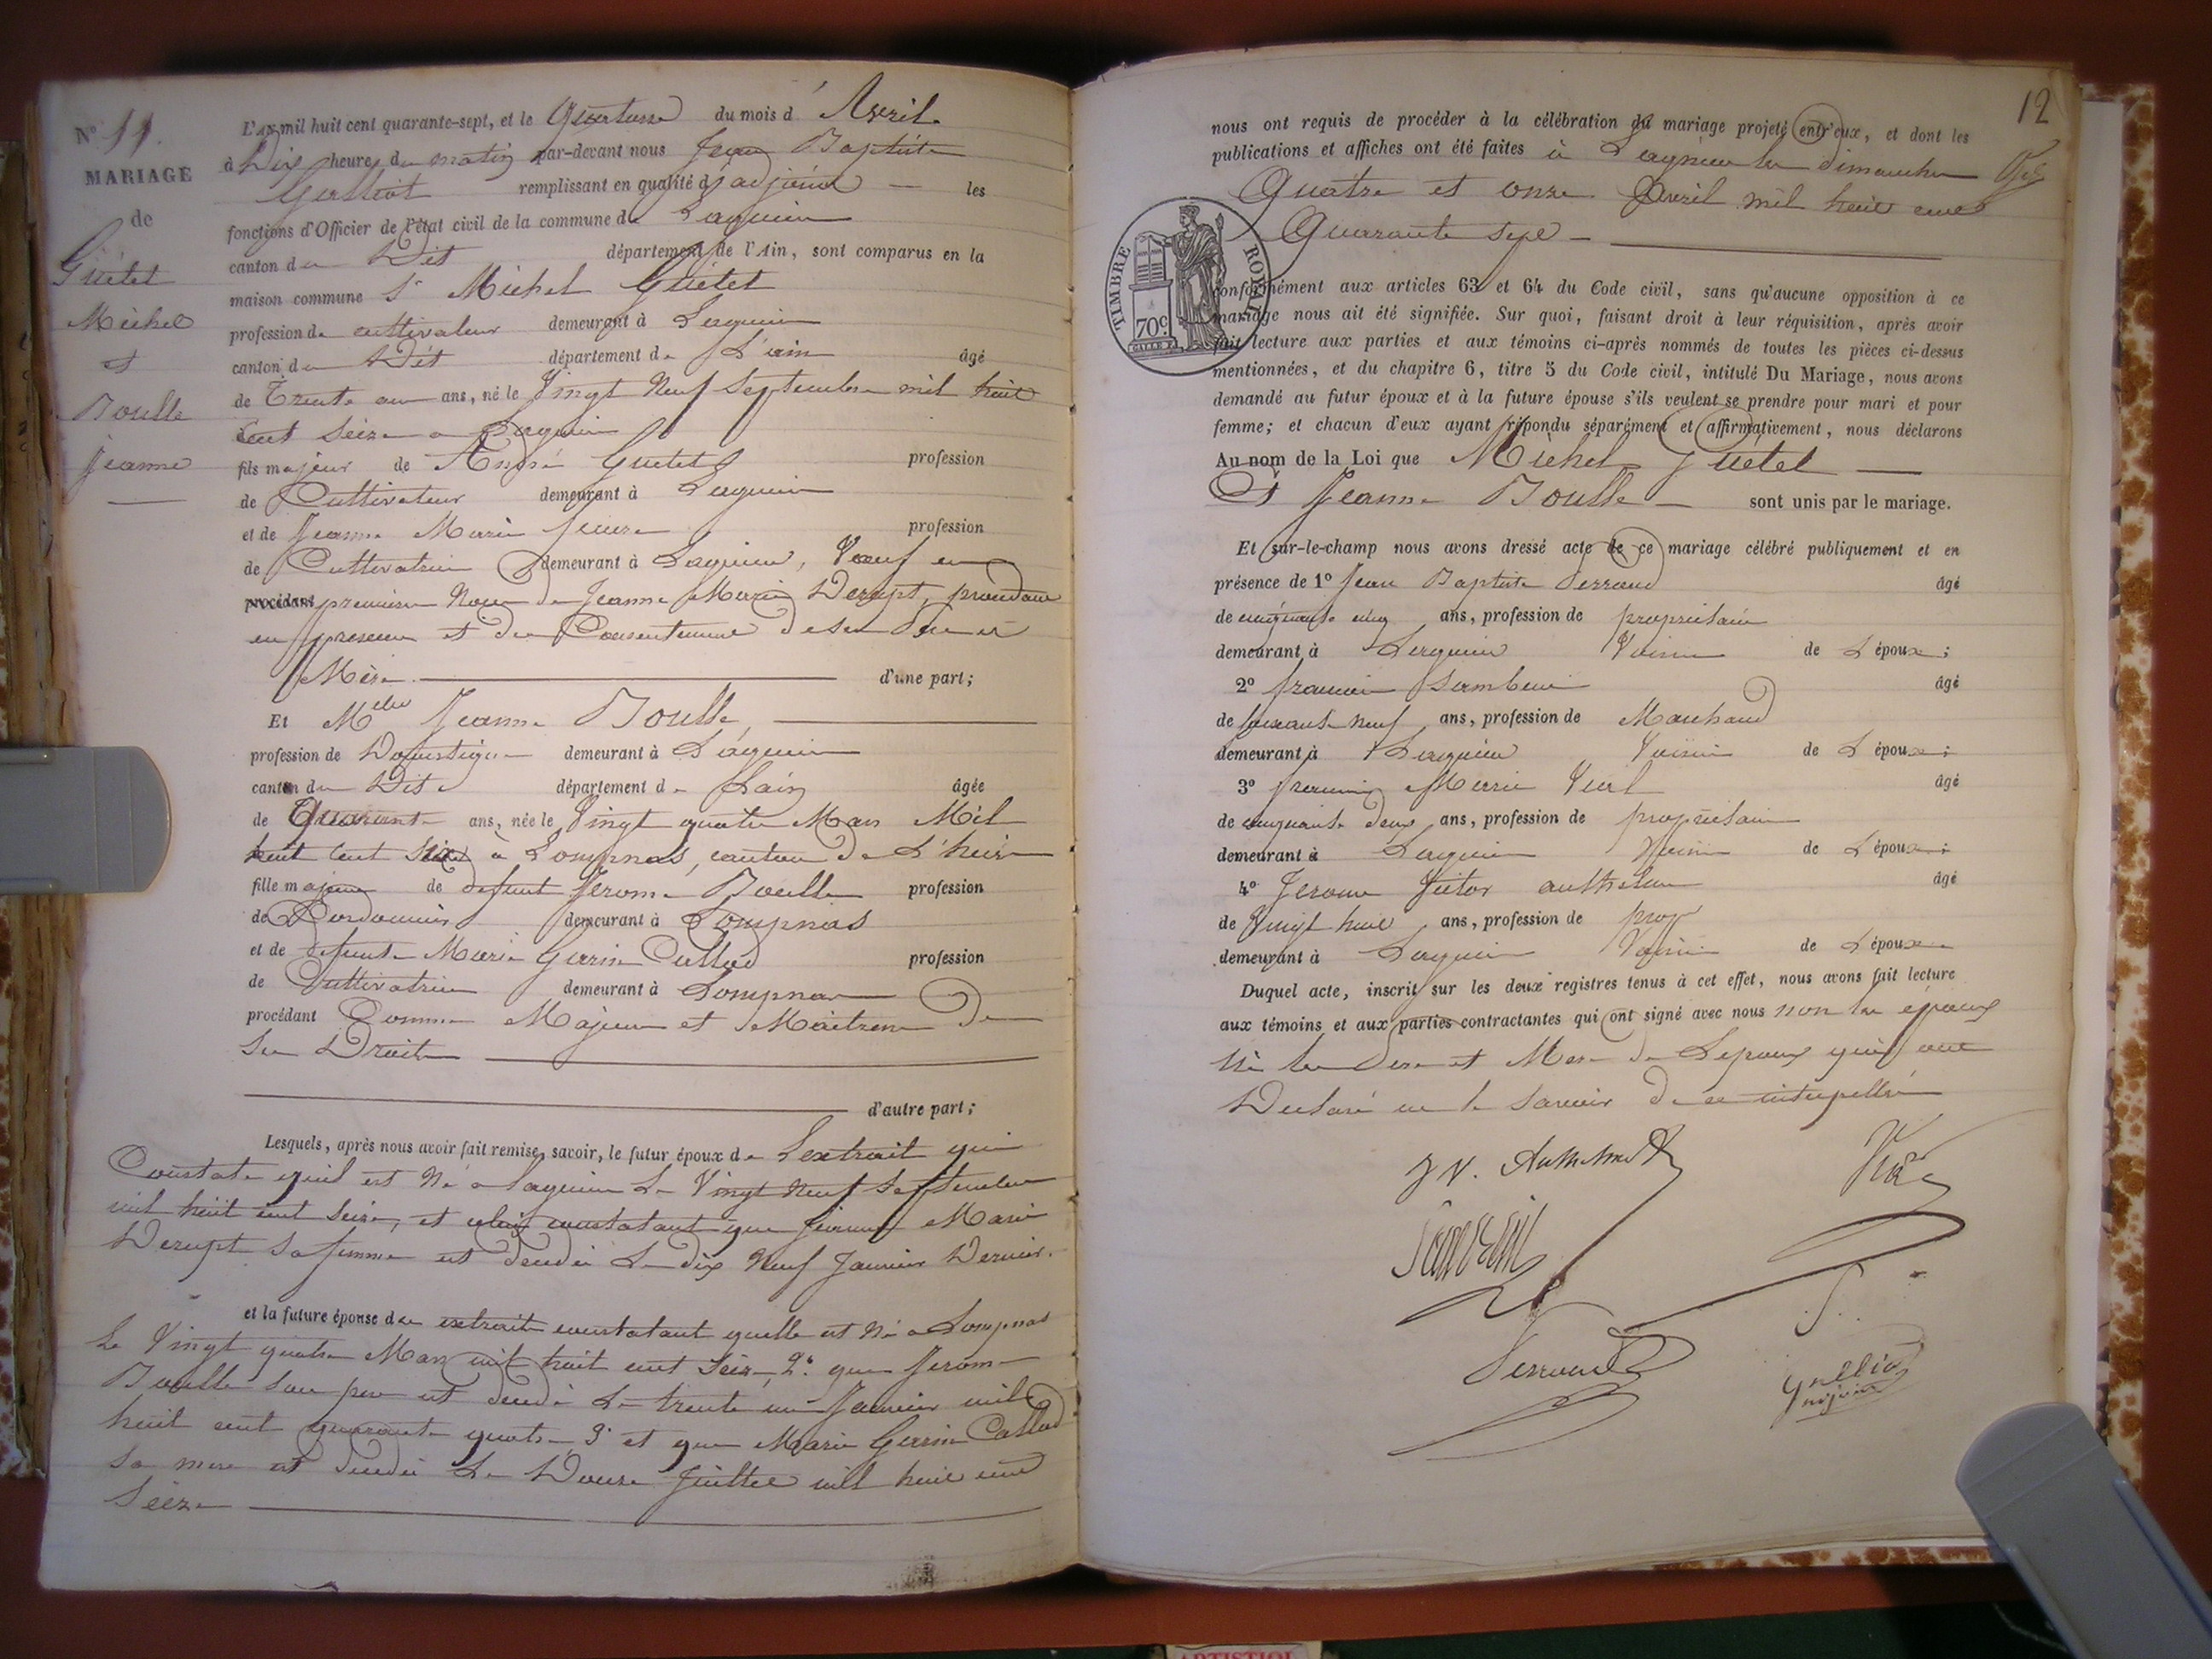 N° 11.
MARIAGE
de
Guétet
Michel
et
Boulle
Jeanne
L'An mil huit cent quarante-sept, et le Quatorze du mois d'Avril
à Dix heures du matin par-devant nous Jean Baptiste
remplissant en qualité d'adjoint — les
fonctions d'Officier de l'état civil de la commune de Lagnieu
canton du Dit département de l'Ain, sont comparus en la
maison commune Sr Michel Guétet
profession de cultivateur demeurant à Lagnieu
canton du Dit département de L'ain âgé
de Trente ans, né le Vingt Neuf Septembre mil huit
Cent Seize a Lagnieu
fils majeur de André Guétet profession
de Cultivateur demeurant à Lagnieu
et de Jeanne Marie profession
de Cultivatrice demeurant à Lagnieu, Veuf en
procédant première Noce de Jeanne Marie Derupt, procédant
en présence et du Consentement de ses Père et
Mère d'une part;
Et Melle Jeanne Boulle
profession de Domestique demeurant à Lagnieu
canton du Dit département de Lain âgée
de ans, née le Vingt quatre Mars Mil
huit Cent Seize à Lompnas, canton de L'huis
fille majeure de défunt Jerome Boulle profession
de Cordonnier demeurant à Lompnas
et de défunte Marie Gerin profession
de Cultivatrice demeurant à Lompnas
procédant Comme Majeure et Maitresse de
Ses Droits
d'autre part;
Lesquels, après nous avoir fait remise, savoir, le futur époux de L'extrait qui
Constate quil est Né a Lagnieu Le Vingt Neuf Septembre
mil huit cent Seize, et celui constatant que Jeanne Marie
Derupt Sa femme est décédée Le dix Neuf Janvier Dernier.
et la future épouse des extraits constatant quelle est Né a Lompnas
Le Vingt quatre Mars mil huit cent Seize, 2° que Jerome
Boulle Son père est décédé Le trente un Janvier mil
huit cent quarante quatre 3° et que Marie Gerin
Sa mère est décédée Le Douze Juillet mil huit cent
Seize
12
nous ont requis de procéder à la célébration du mariage projeté entr'eux, et dont les
publications et affiches ont été faites à Lagnieu les dimanches
Quatre et onze Avril mil huit cent
Quarante sept
TIMBRE ROYAL
70c.
conformément aux articles 63 et 64 du Code civil, sans qu'aucune opposition à ce
mariage nous ait été signifiée. Sur quoi, faisant droit à leur réquisition, après avoir
fait lecture aux parties et aux témoins ci-après nommés de toutes les pièces ci-dessus
mentionnées, et du chapitre 6, titre 5 du Code civil, intitulé Du Mariage, nous avons
demandé au futur époux et à la future épouse s'ils veulent se prendre pour mari et pour
femme; et chacun d'eux ayant répondu séparément et affirmativement, nous déclarons
Au nom de la Loi que Michel Guétet
Et Jeanne Boulle sont unis par le mariage.
Et sur-le-champ nous avons dressé acte de ce mariage célébré publiquement et en
présence de 1° Jean Baptiste Perraud âgé
de cinquante cinq ans, profession de propriétaire
demeurant à Lagnieu Voisin de L'époux;
2° âgé
de soixante neuf ans, profession de Marchand
demeurant à Lagnieu Voisin de L'époux;
3° Marie âgé
de cinquante deux ans, profession de propriétaire
demeurant à Lagnieu Voisin de L'époux;
4° Jerome Victor âgé
de Vingt huit ans, profession de propr
demeurant à Lagnieu Voisin de L'époux
Duquel acte, inscrit sur les deux registres tenus à cet effet, nous avons fait lecture
aux témoins et aux parties contractantes qui ont signé avec nous non les époux
Ni les Père et Mère de Lepoux qui ont
Declaré ne le savoir de ce interpellés
Perraud